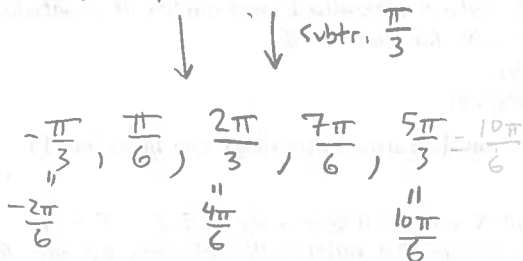 subtr. π/3
-π/3, π/6, 2π/3, 7π/6, 5π/3 = 10π/6
" " "
-2π/6 4π/6 10π/6